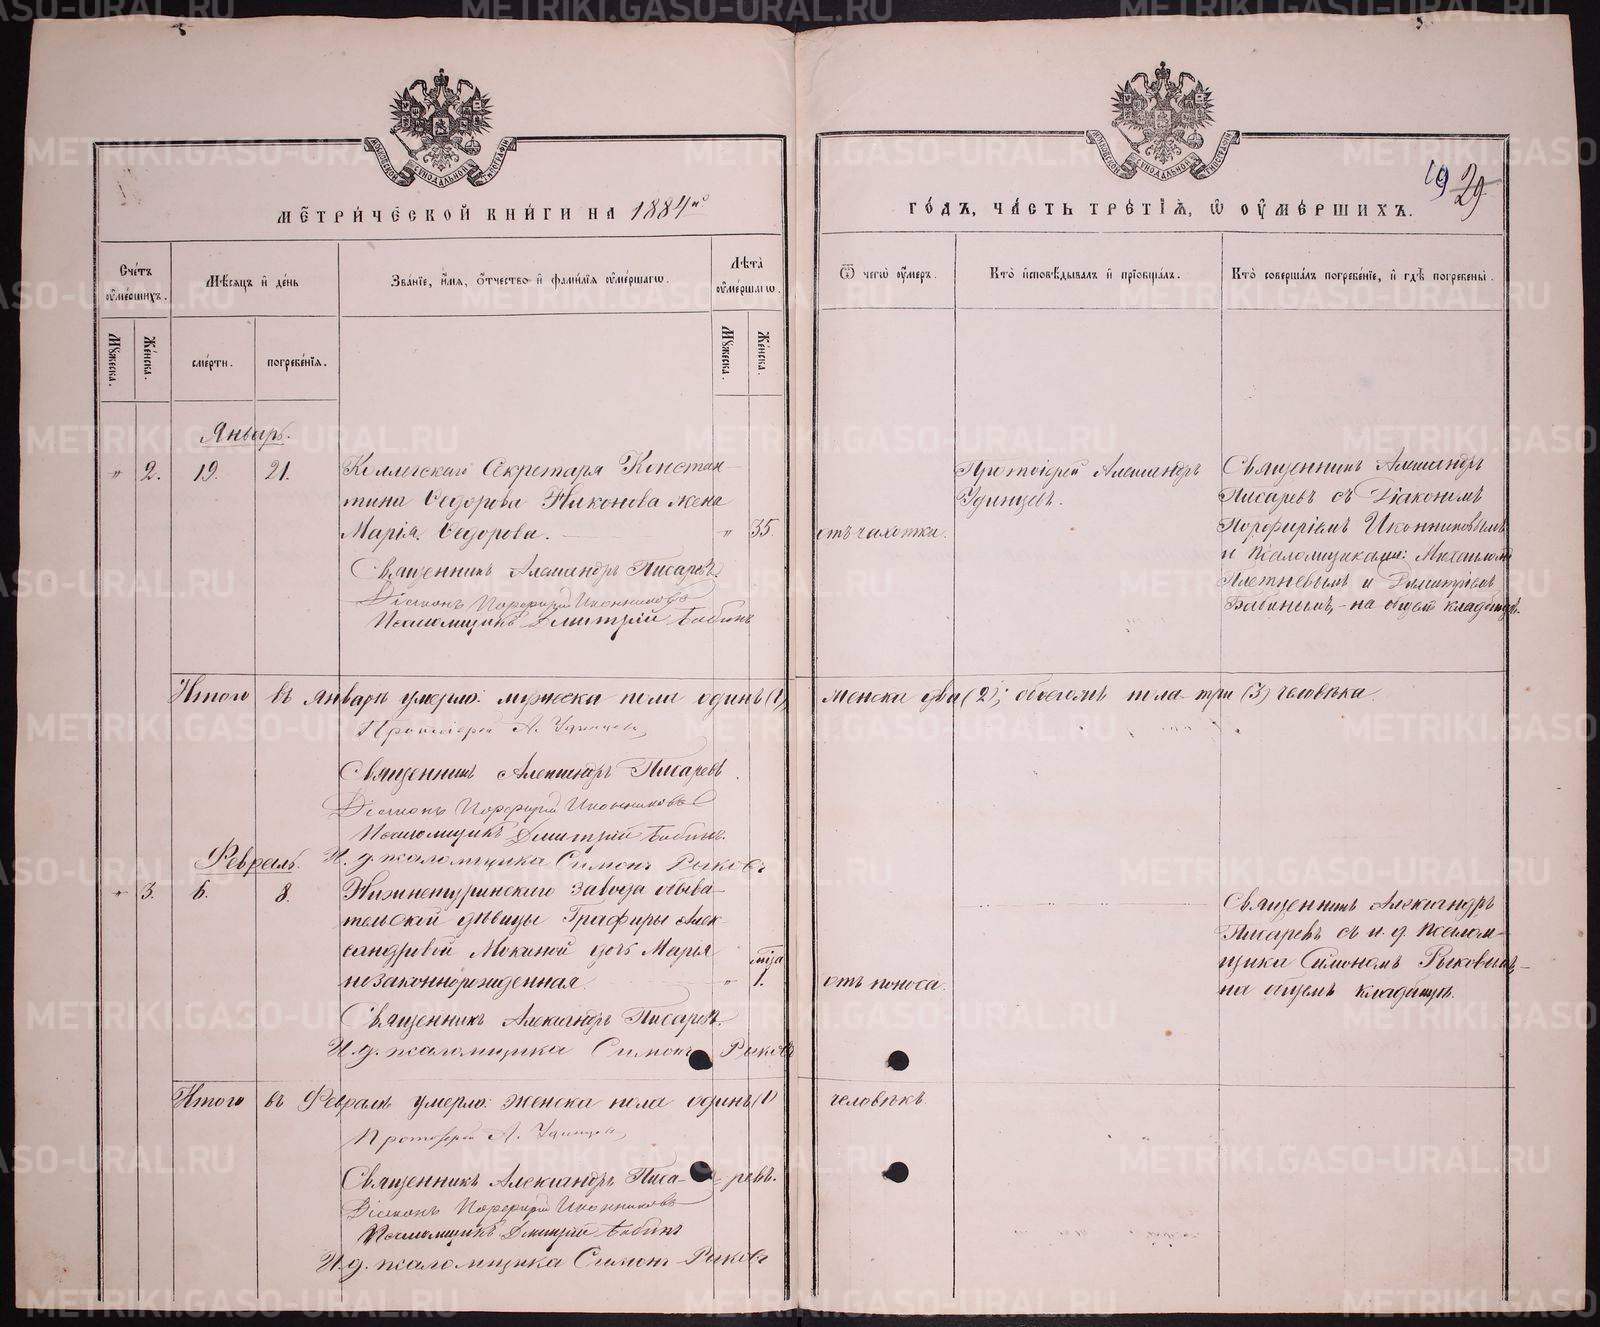 МОСКОВСКОЙ СѴНОДАЛЬНОЙ ТИПОГРАФІИ
МЕТРИЧЕСКОЙ КНИГИ НА 1884й
Счетъ оумершихъ.
Мѣсяцъ и день
Званіе, имя, отчество и фамилія оумершагѡ.
Лѣта оумершагѡ.
Мꙋжеска.
Женска.
смерти.
погребенія.
Мꙋжеска.
Женска.
Январь.
" 2. 19. 21. Коллегскаго Секретаря Констан-
тина Ѳедорова Никонова жена
Марія Ѳедорова. " 35.
Священникъ Александръ Писаревъ.
Діаконъ Порфирій Иконниковъ
Псаломщикъ Дмитрій Бабинъ
Итого въ январѣ умерло: мужеска пола одинъ (1),
Протоіерей А. Удинцевъ
Священникъ Александръ Писаревъ.
Діаконъ Порфирій Иконниковъ
Псаломщикъ Дмитрій Бабинъ.
И. д. псаломщика Симонъ Рыковъ
Февраль.
" 3. 6. 8. Нижнетуринскаго завода обыва-
тельской дѣвицы Глафиры Алек-
сандровой Мокиной дочь Марья
незаконнорожденная. " мца 1.
Священникъ Александръ Писаревъ.
И. д. псаломщика Симонъ Рыковъ
Итого въ Февралѣ умерло: женска пола одинъ (1)
Протоіерей А. Удинцевъ
Священникъ Александръ Писаревъ.
Діаконъ Порфирій Иконниковъ
Псаломщикъ Дмитрій Бабинъ
И. д. псаломщика Симонъ Рыковъ
МОСКОВСКОЙ СѴНОДАЛЬНОЙ ТИПОГРАФІИ
19 29
ГОДЪ, ЧАСТЬ ТРЕТІЯ, Ѡ ОУМЕРШИХЪ.
Ѿ чегѡ оумеръ.
Кто исповѣдывалъ и пріобщалъ.
Кто совершалъ погребеніе, и гдѣ погребены.
отъ чахотки.
Протоіерей Александръ
Удинцевъ.
Священникъ Александръ
Писаревъ съ Діакономъ
Порфиріемъ Иконниковымъ
и Псаломщиками: Михаиломъ
Плетневымъ и Димитріемъ
Бабинымъ, – на общемъ кладбищѣ.
женска два (2); обоего пола три (3) человѣка.
отъ поноса.
Священникъ Александръ
Писаревъ съ и. д. псалом-
щика Симономъ Рыковымъ –
на общемъ кладбищѣ.
человѣкъ.
METRIKI.GASO-URAL.RU